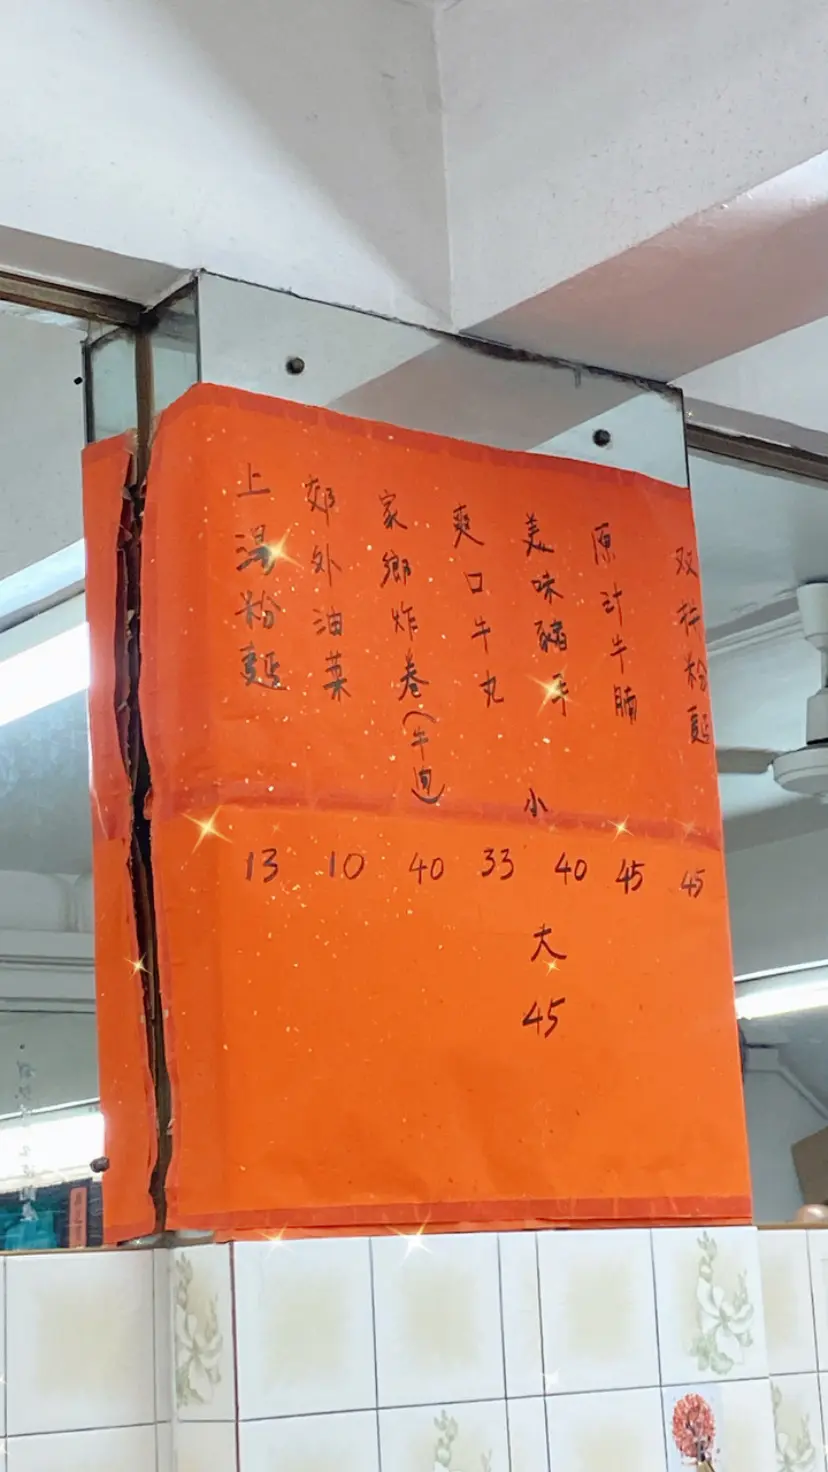 双拼粉麵
45
原汁牛腩
45
美味豬手
小
40
大
45
爽口牛丸
33
家鄉炸卷(牛脷)
40
郊外油菜
10
上湯粉麵
13